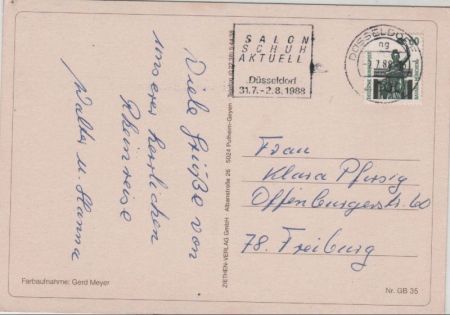 SALON
SCHUH
AKTUELL
Düsseldorf
31.7.-2.8.1988
DÜSSELDORF
Viele Grüße von
unserer herrlichen
Rheinreise
Walter u. Hanna
ZIETHEN-VERLAG GmbH Albanstraße 26 5024 Pulheim-Geyen
Frau
Klara
Offenburgerstr. 60
78. Freiburg
Farbaufnahme: Gerd Meyer
Nr. GB 35